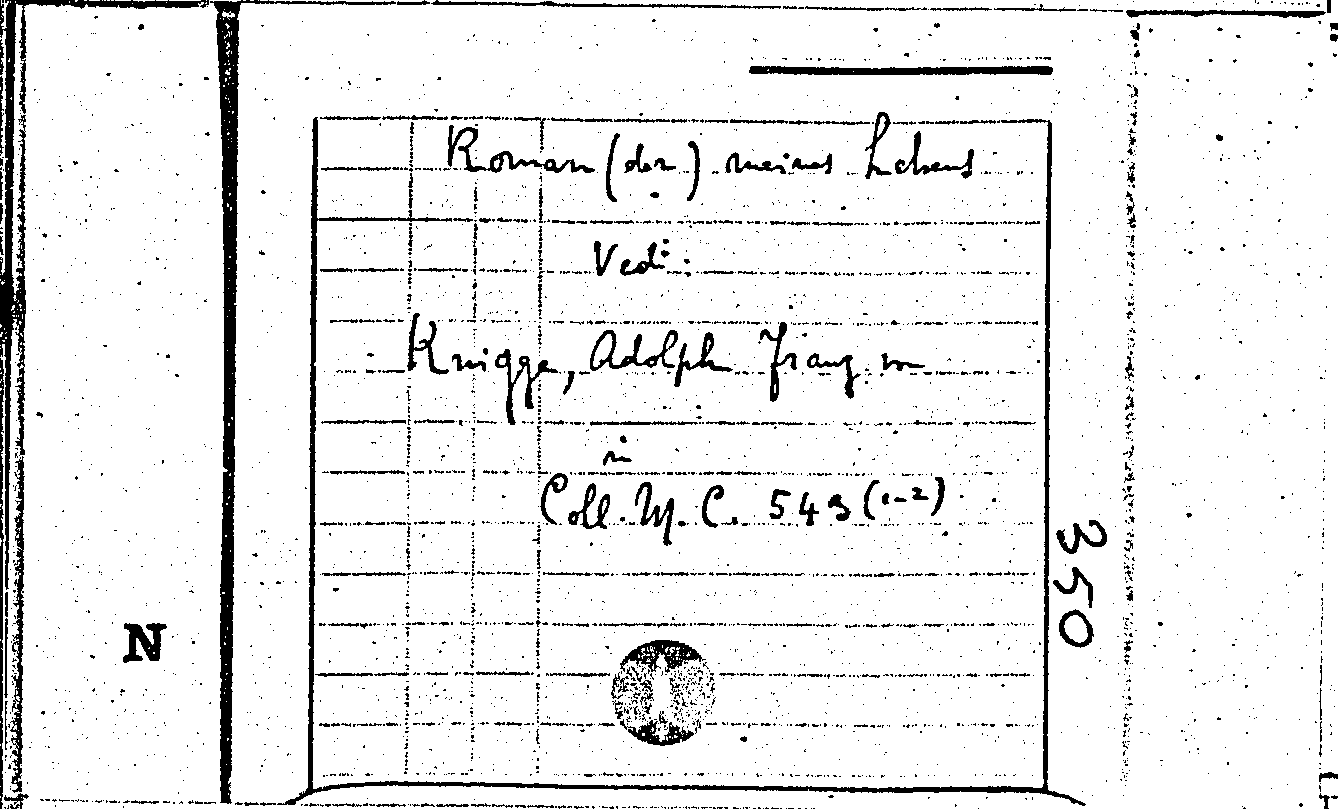 Roman (der) meines Lebens
Vedi:
Knigge, Adolph Franz von
in
Coll. M. C. 549 (1-2)
350
N